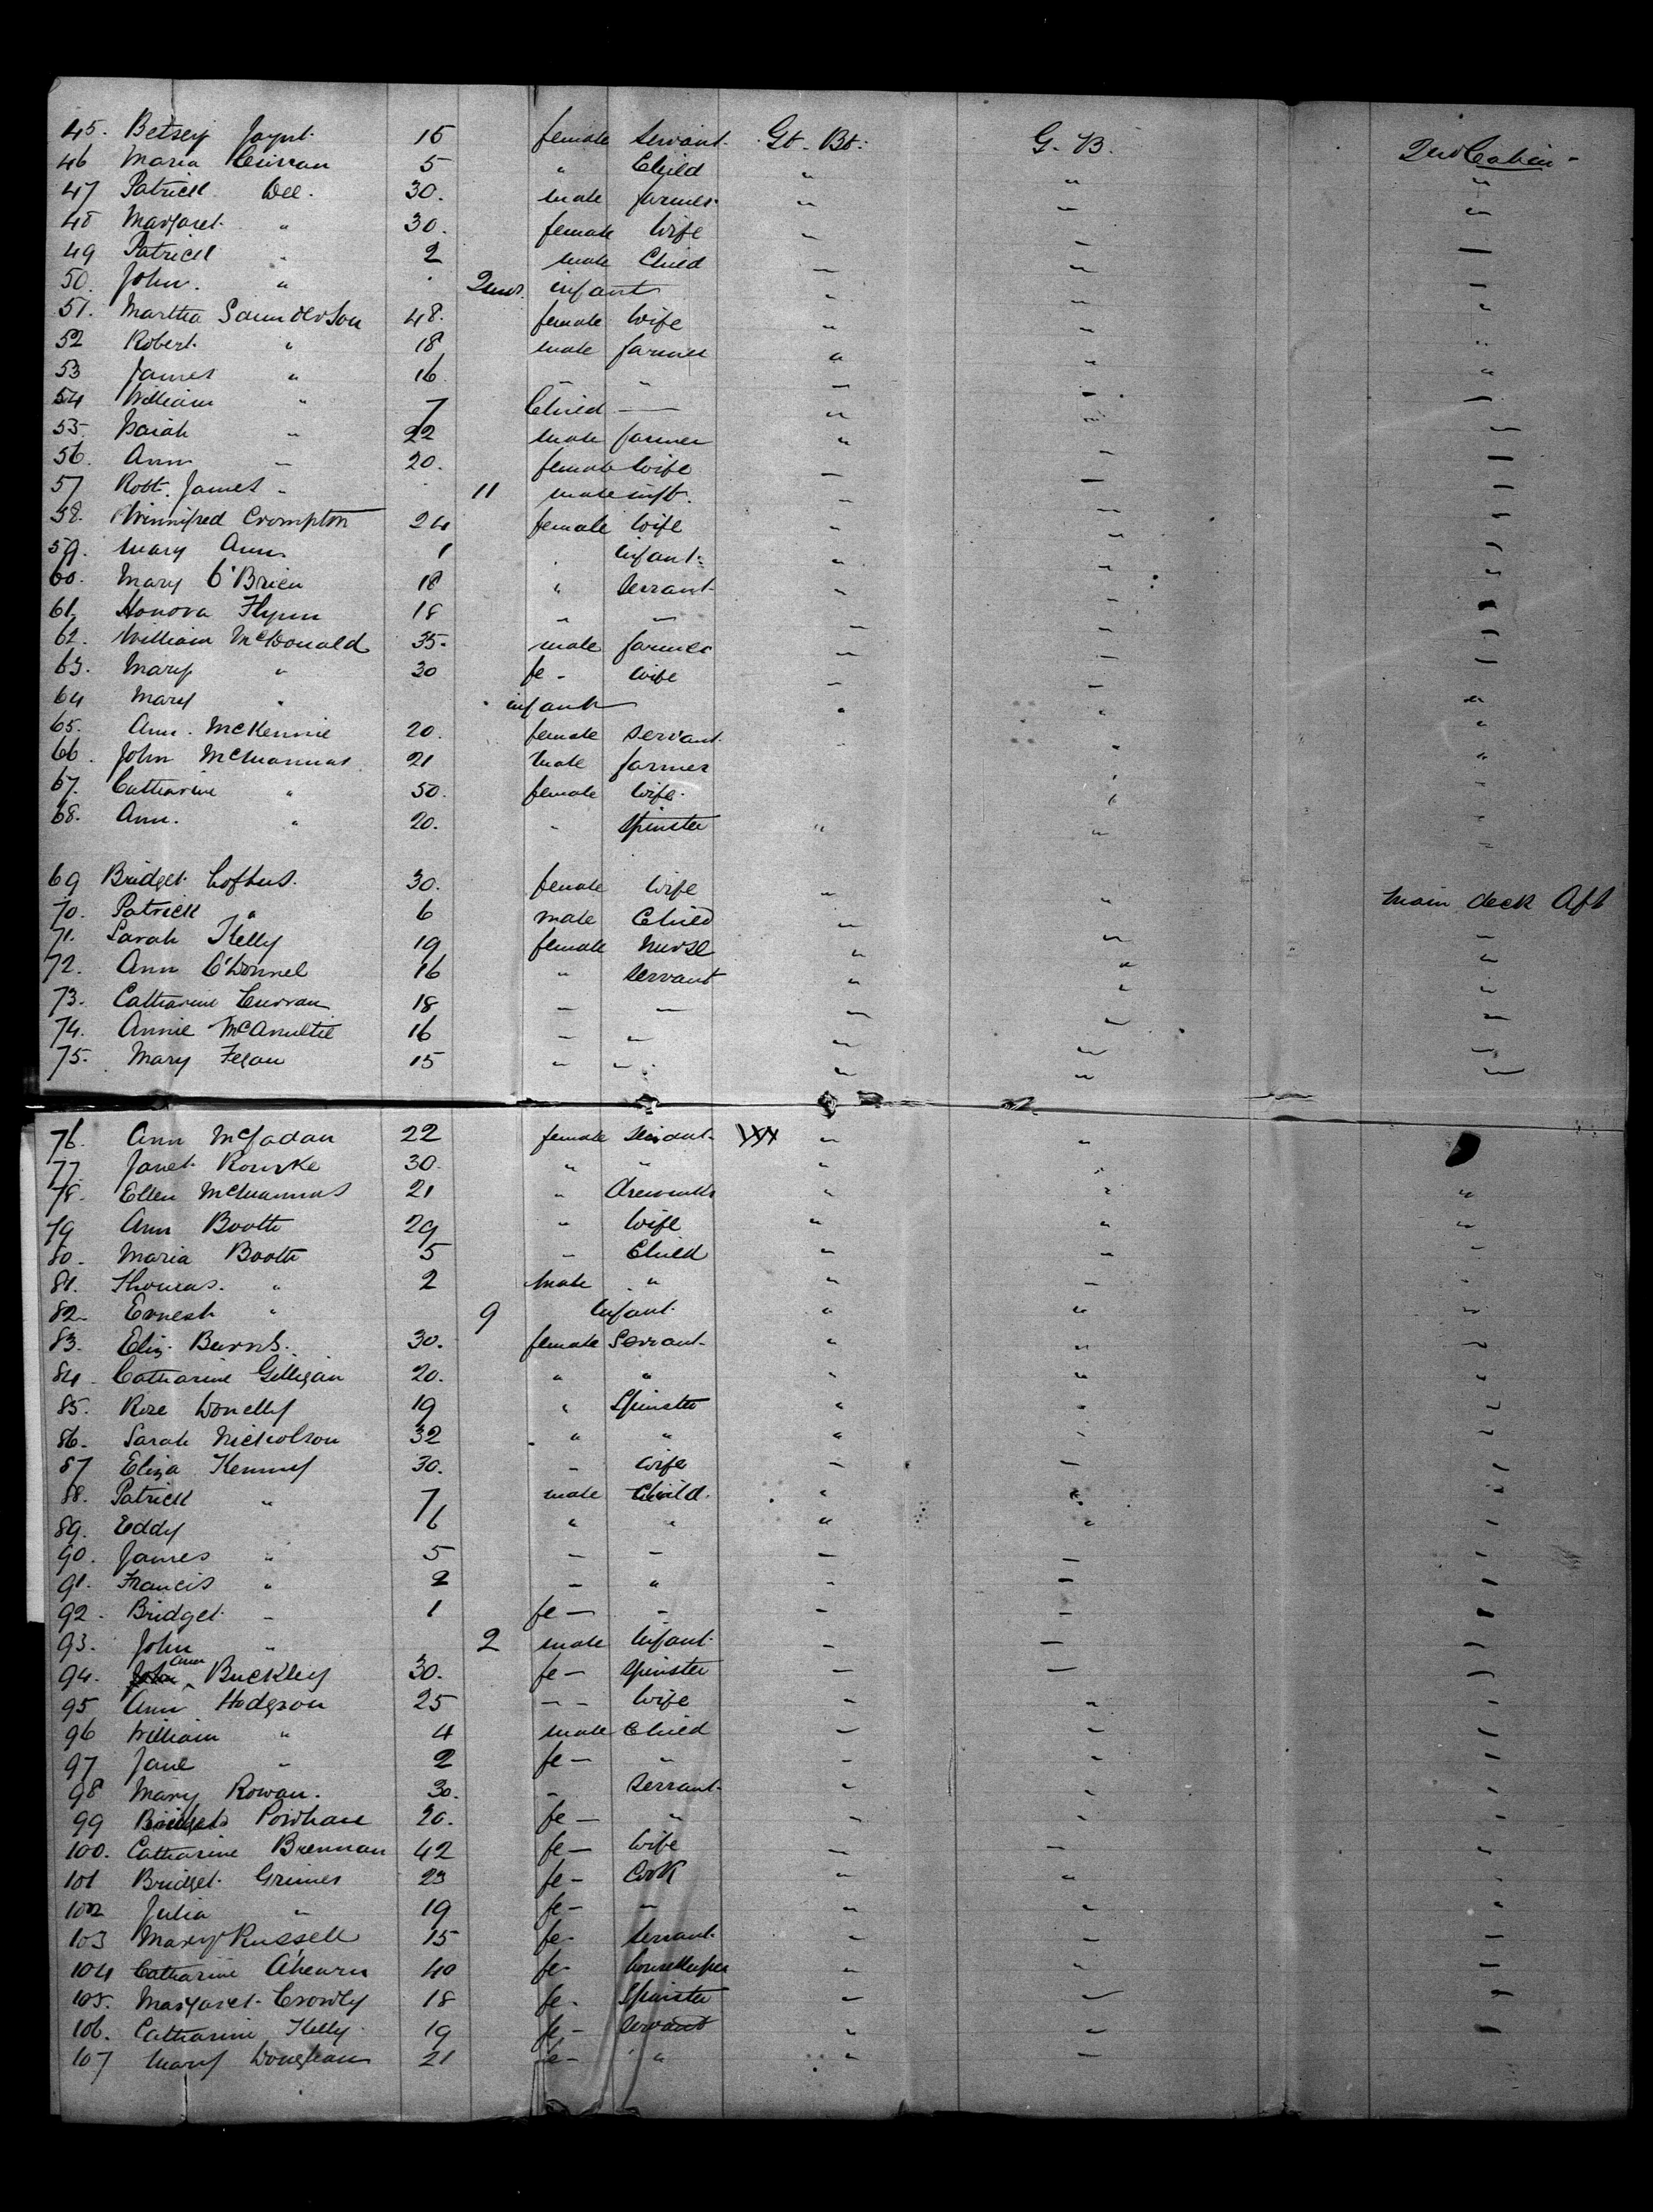 45. Betsey 15 female Servant. Gt. Bt. G. B. 2nd Cabin -
46 Maria Curran 5 " Child " " "
47 Patrick Dee. 30. male farmer " " "
48 Margaret " 30. female Wife " " "
49 Patrick " 2 male Child " " "
50. John. " 2 mos. infant " " "
51. Martha Saunderson 48. female Wife " " "
52 Robert " 18 male farmer " " "
53 James " 16 " " " " "
54 William " 7 Child — " " "
55. Isaiah " 22 male farmer " " "
56. Ann " 20. female Wife " " "
57 Robt. James " 11 male inft. " " "
58. Winnifred Crompton 24 female Wife " " "
59. Mary Ann 1 infant " " "
60. Mary O'Brien 18 " Servant " " "
61. Honora Flynn 18 " " " " "
62. William McDonald 35. male farmer " " "
63. Mary " 30 fe - Wife " " "
64 Mary " infant " " "
65. Ann. McKennie 20. female Servant " " "
66. John McManmas 21 male farmer " "
67. Catharine " 50. female Wife. " "
68. Ann. " 20. " Spinster " " "
69 Bridget Loftus. 30. female Wife " " Main deck Aft
70. Patrick " 6 male Child " " "
71. Sarah Kelly 19 female Nurse " " "
72. Ann O'Donnel 16 " Servant " " "
73. Catharine Curran 18 " " " " "
74. Annie McAnultie 16 " " " " "
75. Mary Fegan 15 " " " " "
76. Ann McFadan 22 female Servant " "
77. Janet Rourke 30. " " " "
78. Ellen McManmus 21 " " " "
79 Ann Booth 29 " Wife " " "
80. Maria Booth 5 " Child " " "
81. Thomas. " 2 male " " " "
82. Ernest " 9 Infant " " "
83. Eliz. Burns. 30. female Servant " " "
84. Catharine Gilligan 20. " " " " "
85. Rose Donelly 19 " Spinster " " "
86. Sarah Nicholson 32 " " " " "
87 Eliza Kenny 30. " Wife " " "
88. Patrick " 7 male Child. " " "
89. Eddy 6 " " " " "
90. James " 5 " " " " "
91. Francis " 2 " " " " "
92. Bridget " 1 fe — " " " "
93. John " 2 male Infant " " "
94. Ann Buckley 30. fe — Spinster " " "
95 Ann Hodgson 25 " " Wife " " "
96 William " 4 male Child " " "
97 Jane " 2 fe — " " " "
98 Mary Rowan. 30. " Servant " " "
99 Bridget 20. fe — " " " "
100. Catharine Brennan 42 fe — Wife " " "
101 Bridget Grimes 23 fe - Cook " " "
102 Julia " 19 fe - " " " "
103 Mary Russell 15 fe - Servant " " "
104 Catharine A'hearn 40 fe - housekeeper " " "
105. Margaret Crowly 18 fe - Spinster " " "
106. Catharine Kelly 19 fe - Servant " " "
107 Mary 21 fe - " " "